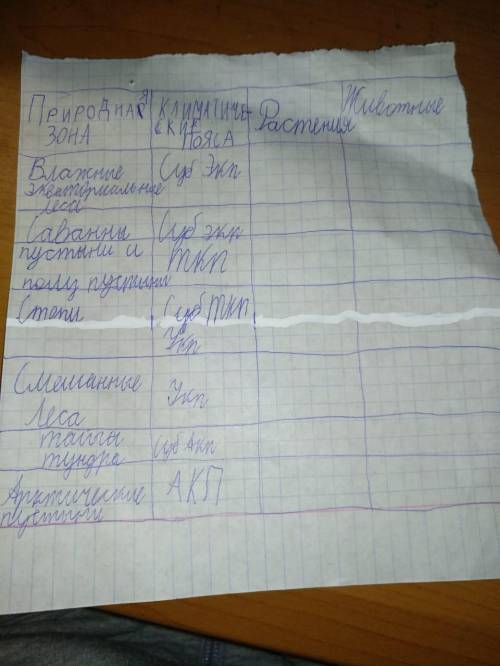 Природная Климатиче- Растения Животные
зона ские пояса
Влажные Суб Экп
экваториальные
леса
Саванны Суб экп
пустыни и ТКП
полу пустыни
Степи Суб ТКП
Укп
Смешанные Укп
Леса
тайги
тундра Суб Акп
Арктические АКП
пустыни